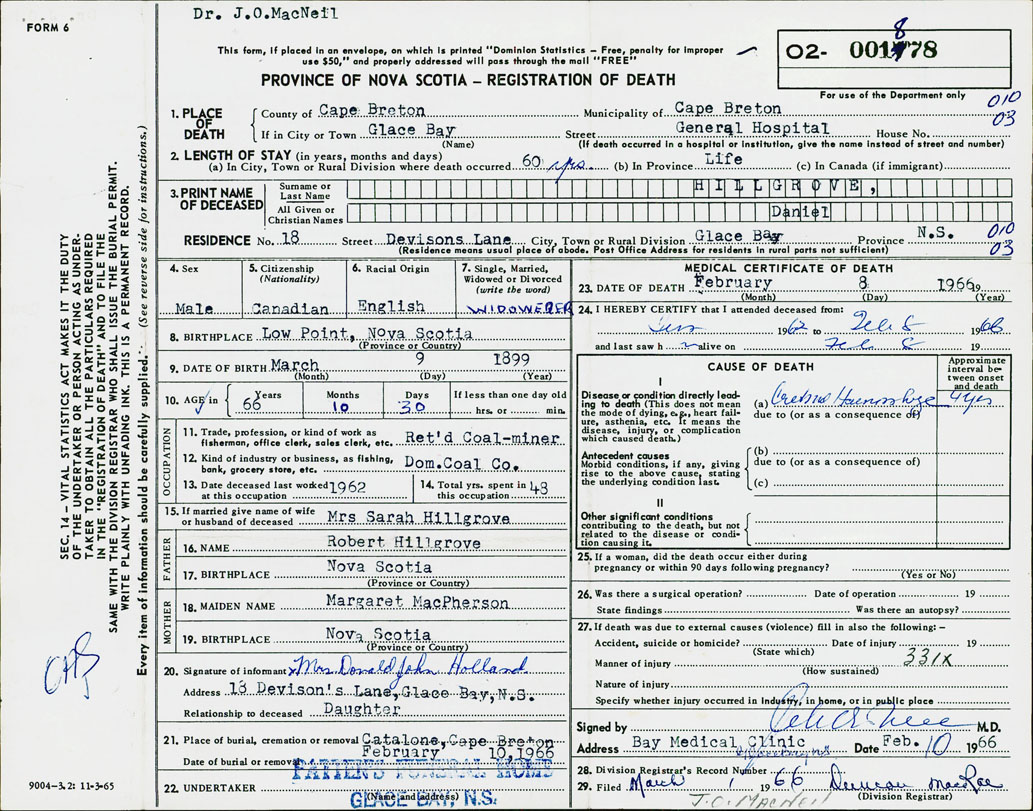 Dr. J.O.MacNeil
FORM 6
This form, if placed in an envelope, on which is printed "Dominion Statistics – Free, penalty for improper
use $50," and properly addressed will pass through the mail "FREE"
PROVINCE OF NOVA SCOTIA – REGISTRATION OF DEATH
02- 001878
For use of the Department only
010
03
1. PLACE OF DEATH
County of Cape Breton Municipality of Cape Breton
If in City or Town Glace Bay Street General Hospital House No.
(Name) (If death occurred in a hospital or institution, give the name instead of street and number)
2. LENGTH OF STAY (in years, months and days)
(a) In City, Town or Rural Division where death occurred 60 yrs. (b) In Province Life (c) In Canada (if immigrant)
3. PRINT NAME OF DECEASED
Surname or Last Name HILLGROVE,
All Given or Christian Names Daniel
RESIDENCE No. 18 Street Devisons Lane City, Town or Rural Division Glace Bay Province N.S.
(Residence means usual place of abode. Post Office Address for residents in rural parts not sufficient)
010
03
4. Sex
Male
5. Citizenship (Nationality)
Canadian
6. Racial Origin
English
7. Single, Married, Widowed or Divorced (write the word)
WIDOWERER
8. BIRTHPLACE Low Point, Nova Scotia
(Province or Country)
9. DATE OF BIRTH March 9 1899
(Month) (Day) (Year)
10. AGE in Years 66 Months 10 Days 30 If less than one day old
hrs. or min.
OCCUPATION
11. Trade, profession, or kind of work as fisherman, office clerk, sales clerk, etc. Ret'd Coal-miner
12. Kind of industry or business, as fishing, bank, grocery store, etc. Dom.Coal Co.
13. Date deceased last worked at this occupation 1962
14. Total yrs. spent in this occupation 48
15. If married give name of wife or husband of deceased Mrs Sarah Hillgrove
FATHER
16. NAME Robert Hillgrove
17. BIRTHPLACE Nova Scotia
(Province or Country)
MOTHER
18. MAIDEN NAME Margaret MacPherson
19. BIRTHPLACE Nova Scotia
(Province or Country)
20. Signature of informant x Mrs. Donald John Holland
Address 18 Devison's Lane, Glace Bay, N.S.
Relationship to deceased Daughter
21. Place of burial, cremation or removal Catalone, Cape Breton
Date of burial or removal February 10, 1966
22. UNDERTAKER PATTEN'S FUNERAL HOME
(Name and address)
GLACE BAY, N.S.
MEDICAL CERTIFICATE OF DEATH
23. DATE OF DEATH February 8 1966
(Month) (Day) (Year)
24. I HEREBY CERTIFY that I attended deceased from:
1962 to Feb 8 1966
and last saw h alive on Feb 8 19
CAUSE OF DEATH
Approximate interval between onset and death
I
Disease or condition directly leading to death (This does not mean the mode of dying, e.g., heart failure, asthenia, etc. It means the disease, injury, or complication which caused death.)
(a) Cerebral Haemorrhage 4 yrs
due to (or as a consequence of)
Antecedent causes
Morbid conditions, if any, giving rise to the above cause, stating the underlying condition last.
(b)
due to (or as a consequence of)
(c)
II
Other significant conditions
contributing to the death, but not related to the disease or condition causing it.
25. If a woman, did the death occur either during pregnancy or within 90 days following pregnancy?
(Yes or No)
26. Was there a surgical operation? Date of operation 19
State findings Was there an autopsy?
27. If death was due to external causes (violence) fill in also the following: –
Accident, suicide or homicide? Date of injury 19
(State which)
Manner of injury 331X
(How sustained)
Nature of injury
Specify whether injury occurred in Industry, in home, or in public place
Signed by M.D.
Address Bay Medical Clinic Date Feb. 10 1966
28. Division Registrar's Record Number
29. Filed March 1 1966 Duncan MacRae
(Division Registrar)
J.O. MACNEIL
SEC. 14 – VITAL STATISTICS ACT MAKES IT THE DUTY
OF THE UNDERTAKER OR PERSON ACTING AS UNDER-
TAKER TO OBTAIN ALL THE PARTICULARS REQUIRED
IN THE "REGISTRATION OF DEATH" AND TO FILE THE
SAME WITH THE DIVISION REGISTRAR WHO SHALL ISSUE THE BURIAL PERMIT.
WRITE PLAINLY WITH UNFADING INK. THIS IS A PERMANENT RECORD.
Every item of information should be carefully supplied. (See reverse side for instructions.)
9004-3.2: 11-3-65